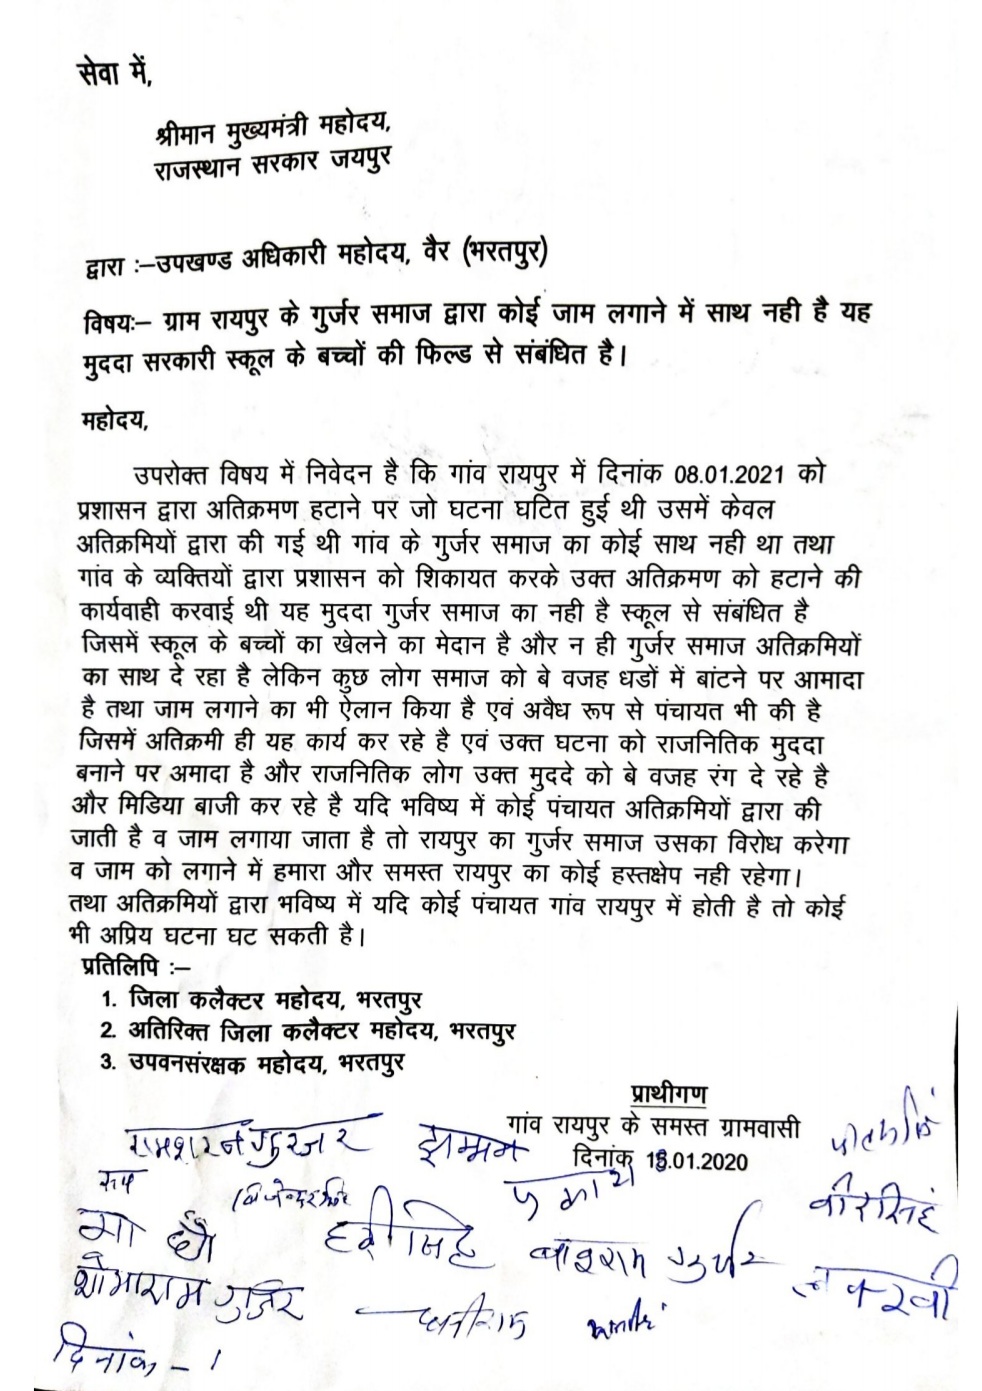 सेवा में,
श्रीमान मुख्यमंत्री महोदय,
राजस्थान सरकार जयपुर
द्वारा :–उपखण्ड अधिकारी महोदय, वैर (भरतपुर)
विषयः– ग्राम रायपुर के गुर्जर समाज द्वारा कोई जाम लगाने में साथ नही है यह
मुददा सरकारी स्कूल के बच्चों की फिल्ड से संबंधित है।
महोदय,
उपरोक्त विषय में निवेदन है कि गांव रायपुर में दिनांक 08.01.2021 को
प्रशासन द्वारा अतिक्रमण हटाने पर जो घटना घटित हुई थी उसमें केवल
अतिक्रमियों द्वारा की गई थी गांव के गुर्जर समाज का कोई साथ नही था तथा
गांव के व्यक्तियों द्वारा प्रशासन को शिकायत करके उक्त अतिक्रमण को हटाने की
कार्यवाही करवाई थी यह मुददा गुर्जर समाज का नही है स्कूल से संबंधित है
जिसमें स्कूल के बच्चों का खेलने का मेदान है और न ही गुर्जर समाज अतिक्रमियों
का साथ दे रहा है लेकिन कुछ लोग समाज को बे वजह धडों में बांटने पर आमादा
है तथा जाम लगाने का भी ऐलान किया है एवं अवैध रूप से पंचायत भी की है
जिसमें अतिक्रमी ही यह कार्य कर रहे है एवं उक्त घटना को राजनितिक मुददा
बनाने पर अमादा है और राजनितिक लोग उक्त मुददे को बे वजह रंग दे रहे है
और मिडिया बाजी कर रहे है यदि भविष्य में कोई पंचायत अतिक्रमियों द्वारा की
जाती है व जाम लगाया जाता है तो रायपुर का गुर्जर समाज उसका विरोध करेगा
व जाम को लगाने में हमारा और समस्त रायपुर का कोई हस्तक्षेप नही रहेगा।
तथा अतिक्रमियों द्वारा भविष्य में यदि कोई पंचायत गांव रायपुर में होती है तो कोई
भी अप्रिय घटना घट सकती है।
प्रतिलिपि :–
1. जिला कलैक्टर महोदय, भरतपुर
2. अतिरिक्त जिला कलैक्टर महोदय, भरतपुर
3. उपवनसंरक्षक महोदय, भरतपुर
प्राथीगण
गांव रायपुर के समस्त ग्रामवासी
दिनांक .01.2020
रामशरन गुरजर
झम्मन
रूप
हरीसिंह
वीरसिंह
गुर्जर
शोभाराम गुर्जर
दिनांक -